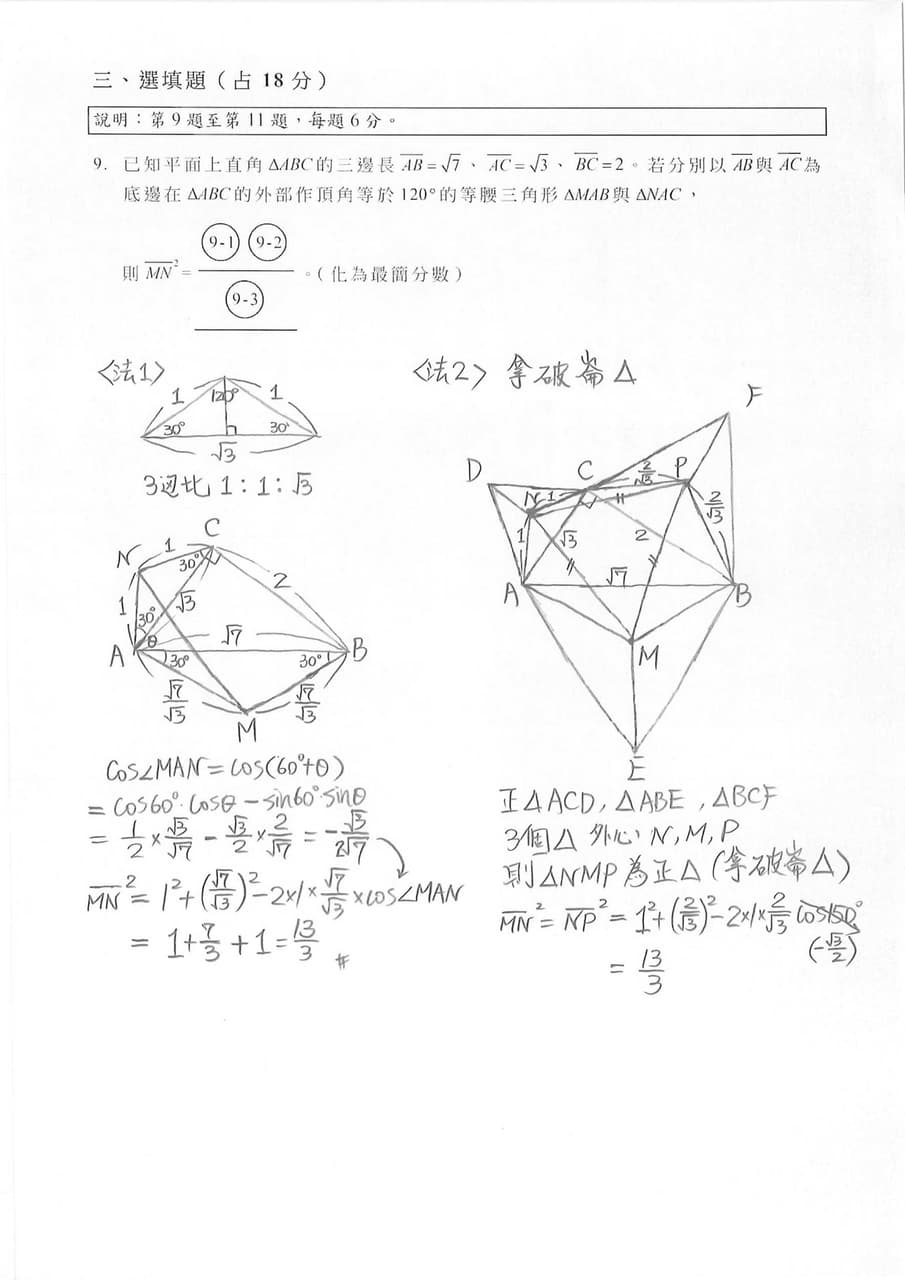 三、選填題(占 18 分)
說明:第 9 題至第 11 題,每題 6 分。
9. 已知平面上直角 ΔABC 的三邊長 A̅B̅ = √7、A̅C̅ = √3、B̅C̅ = 2。若分別以 A̅B̅ 與 A̅C̅ 為
底邊在 ΔABC 的外部作頂角等於 120° 的等腰三角形 ΔMAB 與 ΔNAC,
9-1 9-2
則 M̅N̅² = 。(化為最簡分數)
9-3
<法1>
1 120° 1
30° 30°
√3
3邊比 1:1:√3
C
N 1 30°
1 √3 2
30° θ √7
A 30° 30° B
√7/√3 √7/√3
M
cos∠MAN = cos(60°+θ)
= cos60°·cosθ − sin60°·sinθ
= 1/2 × √3/√7 − √3/2 × 2/√7 = −√3/2√7
M̅N̅² = 1² + (√7/√3)² − 2×1×√7/√3 × cos∠MAN
= 1 + 7/3 + 1 = 13/3 #
<法2> 拿破崙Δ
F
D C 2/√3 P
N 1
1 √3 2 2/√3
A √7 B
M
E
正ΔACD, ΔABE, ΔBCF
3個Δ 外心 N, M, P
則 ΔNMP 為正Δ (拿破崙Δ)
M̅N̅² = N̅P̅² = 1² + (2/√3)² − 2×1×2/√3 cos150°
(−√3/2)
= 13/3